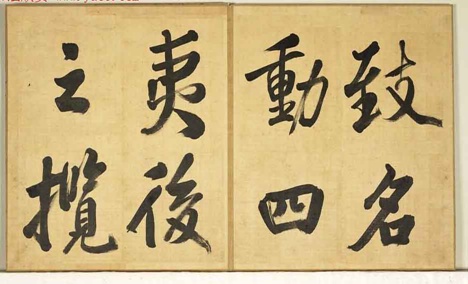 致名
動四
夷後
之攬